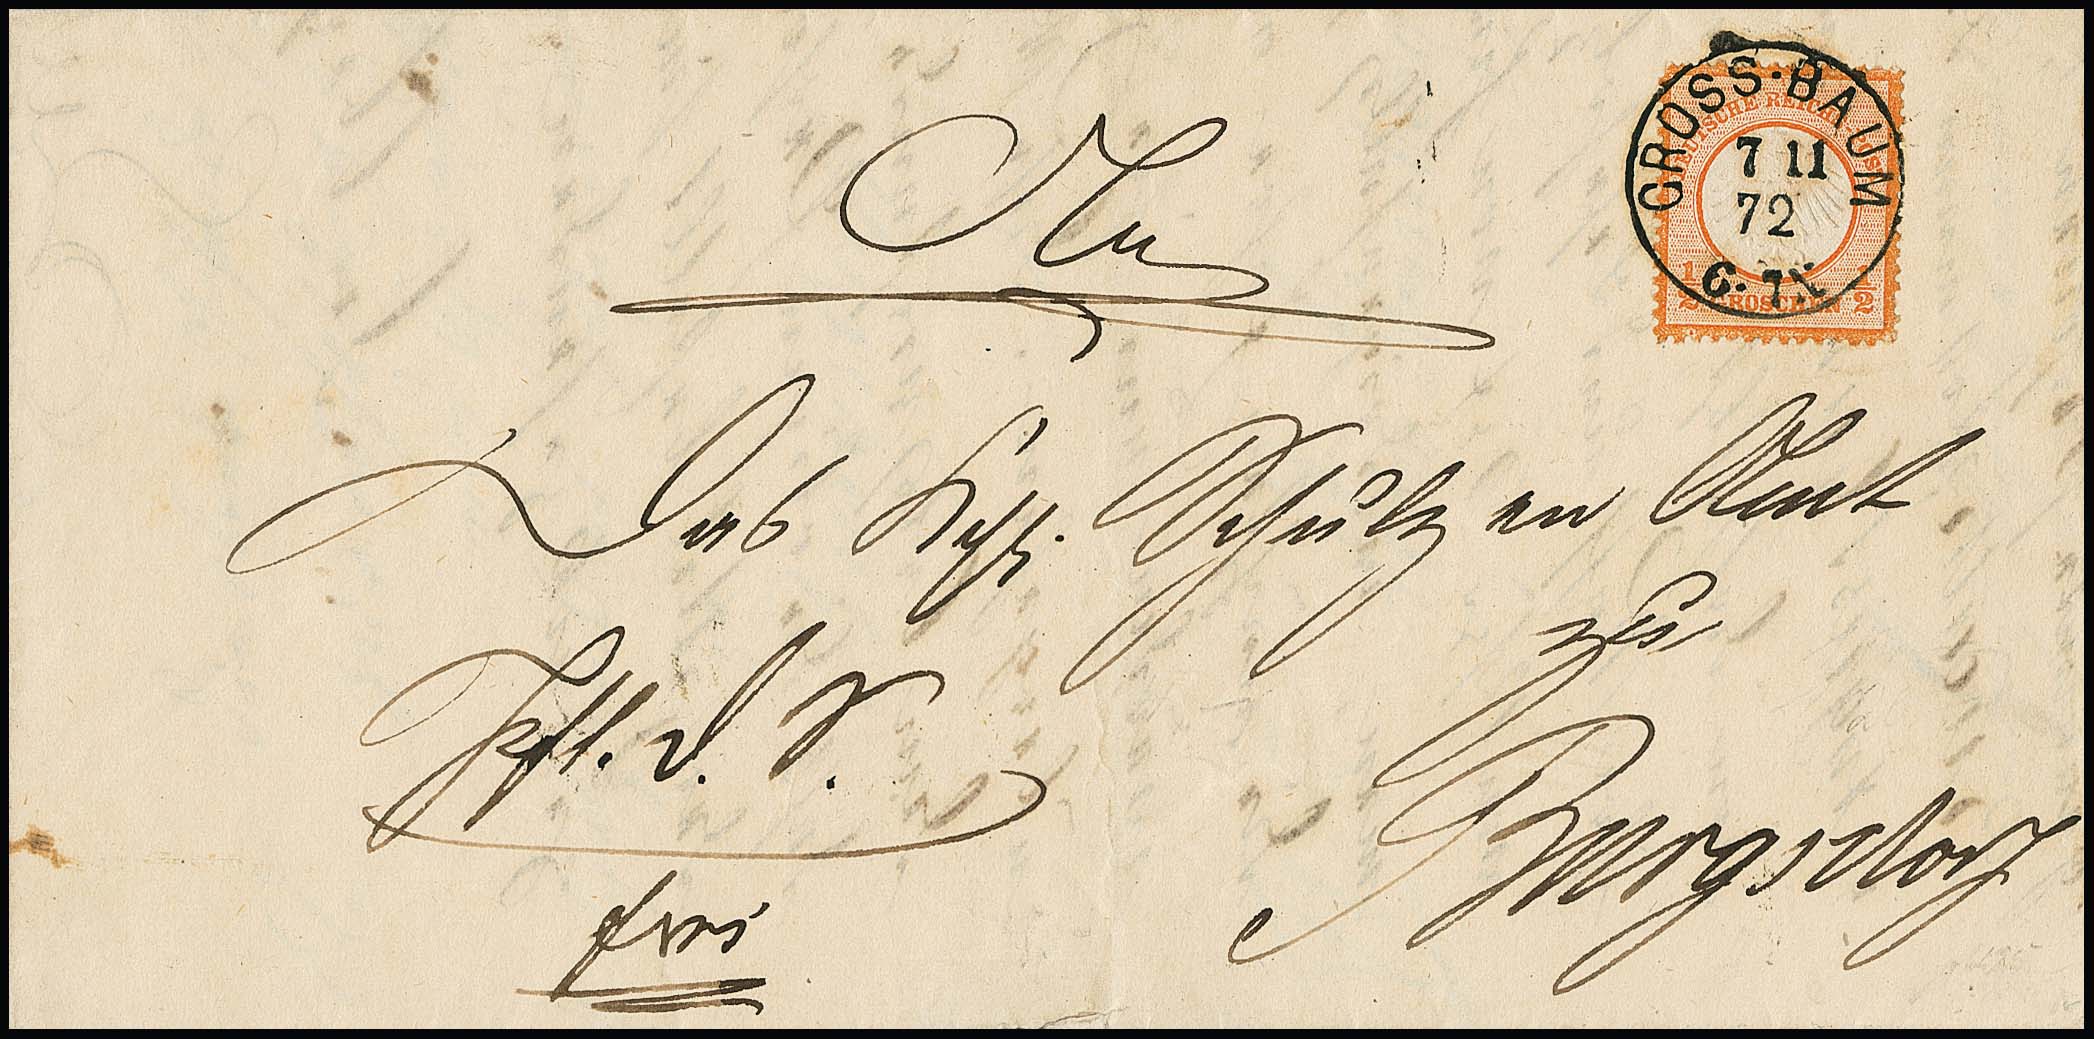 GROSS-BAUM
7 11
72
DEUTSCHE REICHS POST
1/2 GROSCHEN 1/2
An
Das Kgl. Schulzen Amt
zu
Burgsdorf
frei